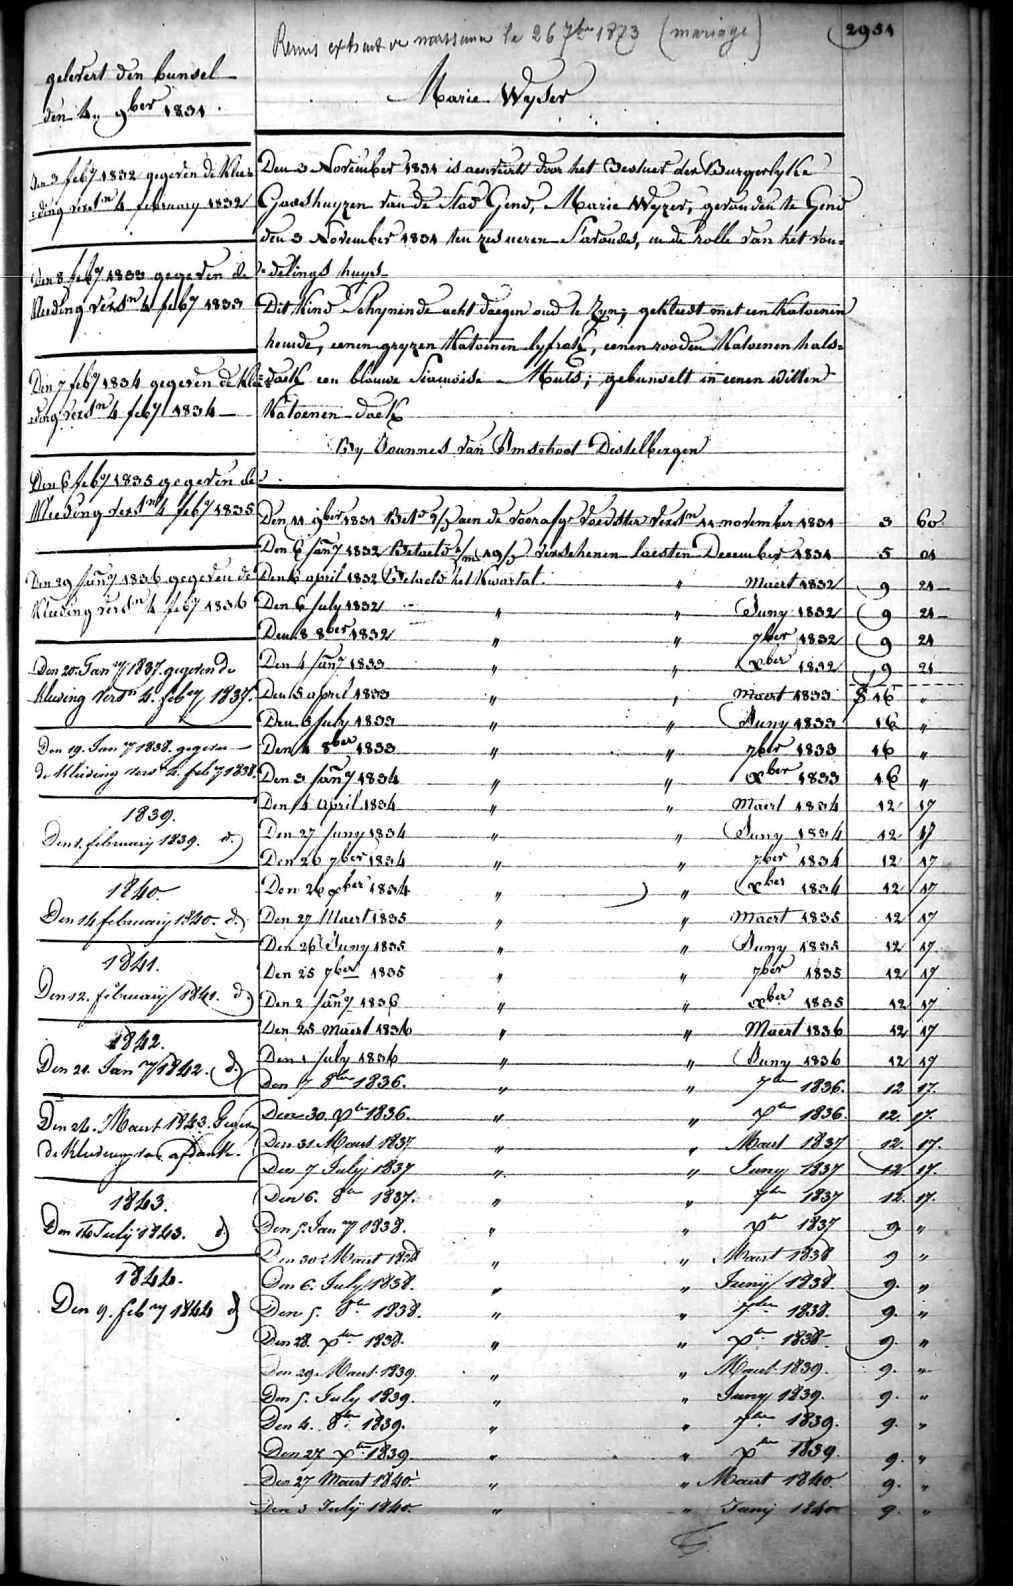 2954
Remis extrait de naissance le 26 7bre 1873 (mariage)
Marie Wyser
gelevert den bunsel
den 4 9ber 1831
Den 3 feby 1832 gegeven de Klee=
=ding verst.n 4 february 1832
Den 8 feby 1833 gegeven de
Kleeding verst.n 4 feby 1833
Den 7 feby 1834 gegeven de Klee=
=ding verst.n 4 feby 1834
Den 6 feby 1835 gegeven de
Kleeding verst.n 4 feby 1835
Den 29 Jany 1836 gegeven de
Kleeding verst.n 4 feby 1836
Den 20. Jany 1837. gegeven de
kleeding verst.n 4. feby 1837.
Den 19. Jany 1838. gegeven
de Kleeding verst.n 4. feby 1838.
1839.
Den 1. february 1839. d.)
1840.
Den 14 february 1840. d.)
1841.
Den 12. february 1841. d.)
1842.
Den 21. Jany 1842. d.)
Den 24. Maart 1843. Gegeven
de kleeding afdank.
1843.
Den 14 July 1843. d)
1844.
Den 9. feby 1844 d)
Den 3 November 1831 is aenveirt door het Bestuer der Burgerlyke
Godshuyzen van de Stad Gend, Marie Wyzer, gevonden te Gend
den 3 November 1831 ten zes ueren s'avonds, in de rolle van het von=
=delings huys
Dit Kind Schynende acht daegen oud te Zyn; gekleed met een Katoenen
hemde, eenen gryzen Katoenen lyfrok, eenen rooden Katoenen hals=
=doek een blauwe Siamoise Muts; gebunselt in eenen witten
Katoenen doek
By Joannes van Imschoot Destelbergen
Den 11 9ber 1831 Bet.d 9/ aen de voorafge voedster verst.n 11 november 1831 3 60
Den 6 Jany 1832 Betaeld 1/m 19/ verschenen laesten December 1831 5 01
Den 6 april 1832 Betaeld het Kwartal " Maert 1832 9 24
Den 6 July 1832 " " Juny 1832 9 24
Den 8 8ber 1832 " " 7ber 1832 9 24
Den 4 Jany 1833 " " Xber 1832 9 24
Den 5 april 1833 " " Maert 1833 16 "
Den 5 July 1833 " " Juny 1833 16 "
Den 4 8ber 1833 " " 7ber 1833 16 "
Den 3 Jany 1834 " " Xber 1833 16 "
Den 4 April 1834 " " Maert 1834 12 17
Den 27 Juny 1834 " " Juny 1834 12 17
Den 26 7ber 1834 " " 7ber 1834 12 17
Den 26 Xber 1834 " " Xber 1834 12 17
Den 27 Maert 1835 " " Maert 1835 12 17
Den 26 Juny 1835 " " Juny 1835 12 17
Den 25 7ber 1835 " " 7ber 1835 12 17
Den 2 Jany 1836 " " Xber 1835 12 17
Den 25 Maert 1836 " " Maert 1836 12 17
Den 1 July 1836 " " Juny 1836 12 17
Den 7 8bre 1836. " " 7bre 1836. 12 17.
Den 30. Xbre 1836. " " Xbre 1836. 12. 17.
Den 31. Maart 1837 " " Maart 1837 12. 17.
Den 7 July 1837 " " Juny 1837 12 17.
Den 6. 8bre 1837. " " 7bre 1837 12. 17.
Den 5. Jany 1838. " " Xbre 1837 9. "
Den 30 Maart 1838 " " Maart 1838 9 "
Den 6. July 1838. " " Juny 1838. 9. "
Den 5. 8bre 1838. " " 7bre 1838. 9. "
Den 28. Xbre 1838. " " Xbre 1838. 9. "
Den 29. Maart 1839. " " Maart 1839. 9. "
Den 5. July 1839. " " Juny 1839. 9. "
Den 4. 8bre 1839. " " 7bre 1839. 9. "
Den 27. Xbre 1839. " " Xbre 1839 9. "
Den 27 Maart 1840. " " Maart 1840. 9. "
Den 3 July 1840. " " Juny 1840 9. "